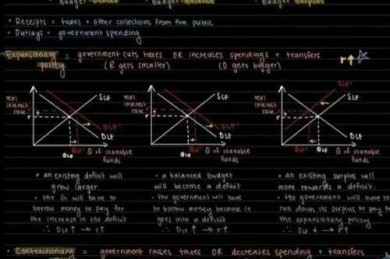 • Receipts = taxes + other collections from the public
• Outlays = government spending
Expansionary = government cuts taxes OR increases spending + transfers
policy (R gets smaller) (O gets bigger)
r↑
real interest rate
SLF
r
DLF
QLF
Q of loanable funds
real interest rate
SLF
r
DLF
QLF
Q of loanable funds
real interest rate
SLF
r
DLF
QLF
Q of loanable funds
• an existing deficit will
grow larger
• the G will have to
borrow money to pay for
the increase in the deficit
∴ DLF ↑ → r↑
• a balanced budget
will become a deficit
• the government will have
to borrow money because it
goes into a deficit
∴ DLF ↑ → r↑
• an existing surplus will
move towards a deficit
• the government will have to
run down its surplus to pay for
the expansionary policy
∴ SLF ↓ → r↑
• Contractionary = government raises taxes OR decreases spending + transfers